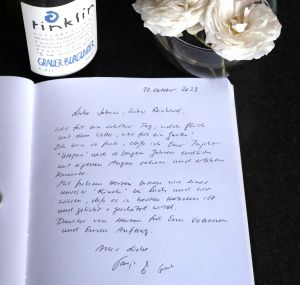 rinklin
GRAUER BURGUNDER
17. Oktober 2023
Liebe Sabine, lieber Reinhard,
was für ein schöner Tag, welch Glück
mit dem Wetter, was für ein
Ich bin so froh, dass ich Euer Projekt
"Utopia" nach so langen Jahren endlich
mit eigenen Augen sehen und erleben
konnte.
Mit frohem Herzen lassen wir eines
unserer "Kinder" bei Euch und wir
wissen, dass es in besten Händen ist
und geliebt + geschätzt wird.
Danke von Herzen für Euer Vertrauen
und Euren Auftrag.
Alles Liebe